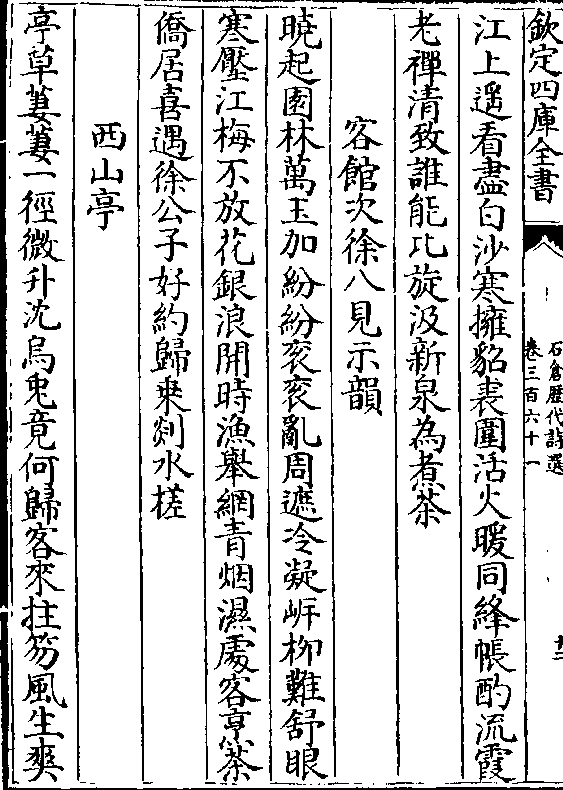 欽定四庫全書
石倉歷代詩選
卷三百六十一
江上遥看盡白沙寒擁貂裘圍活火暖同絳帳酌流霞
老禪清致誰能比旋汲新泉為煮茶
客館次徐八見示韻
曉起園林萬玉加紛紛衮衮亂周遮冷凝岸柳難舒眼
寒壓江梅不放花銀浪開時漁舉網青烟濕處客亨茶
僑居喜遇徐公子好約歸乗剡水槎
西山亭
亭草萋萋一徑微升沈烏兎竟何歸客來拄笏風生爽